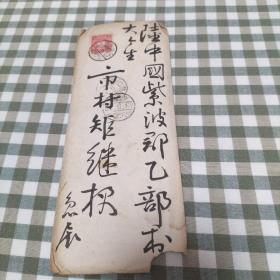 陸中國紫波郡乙部村
大ケ生
市村矩継様
急展